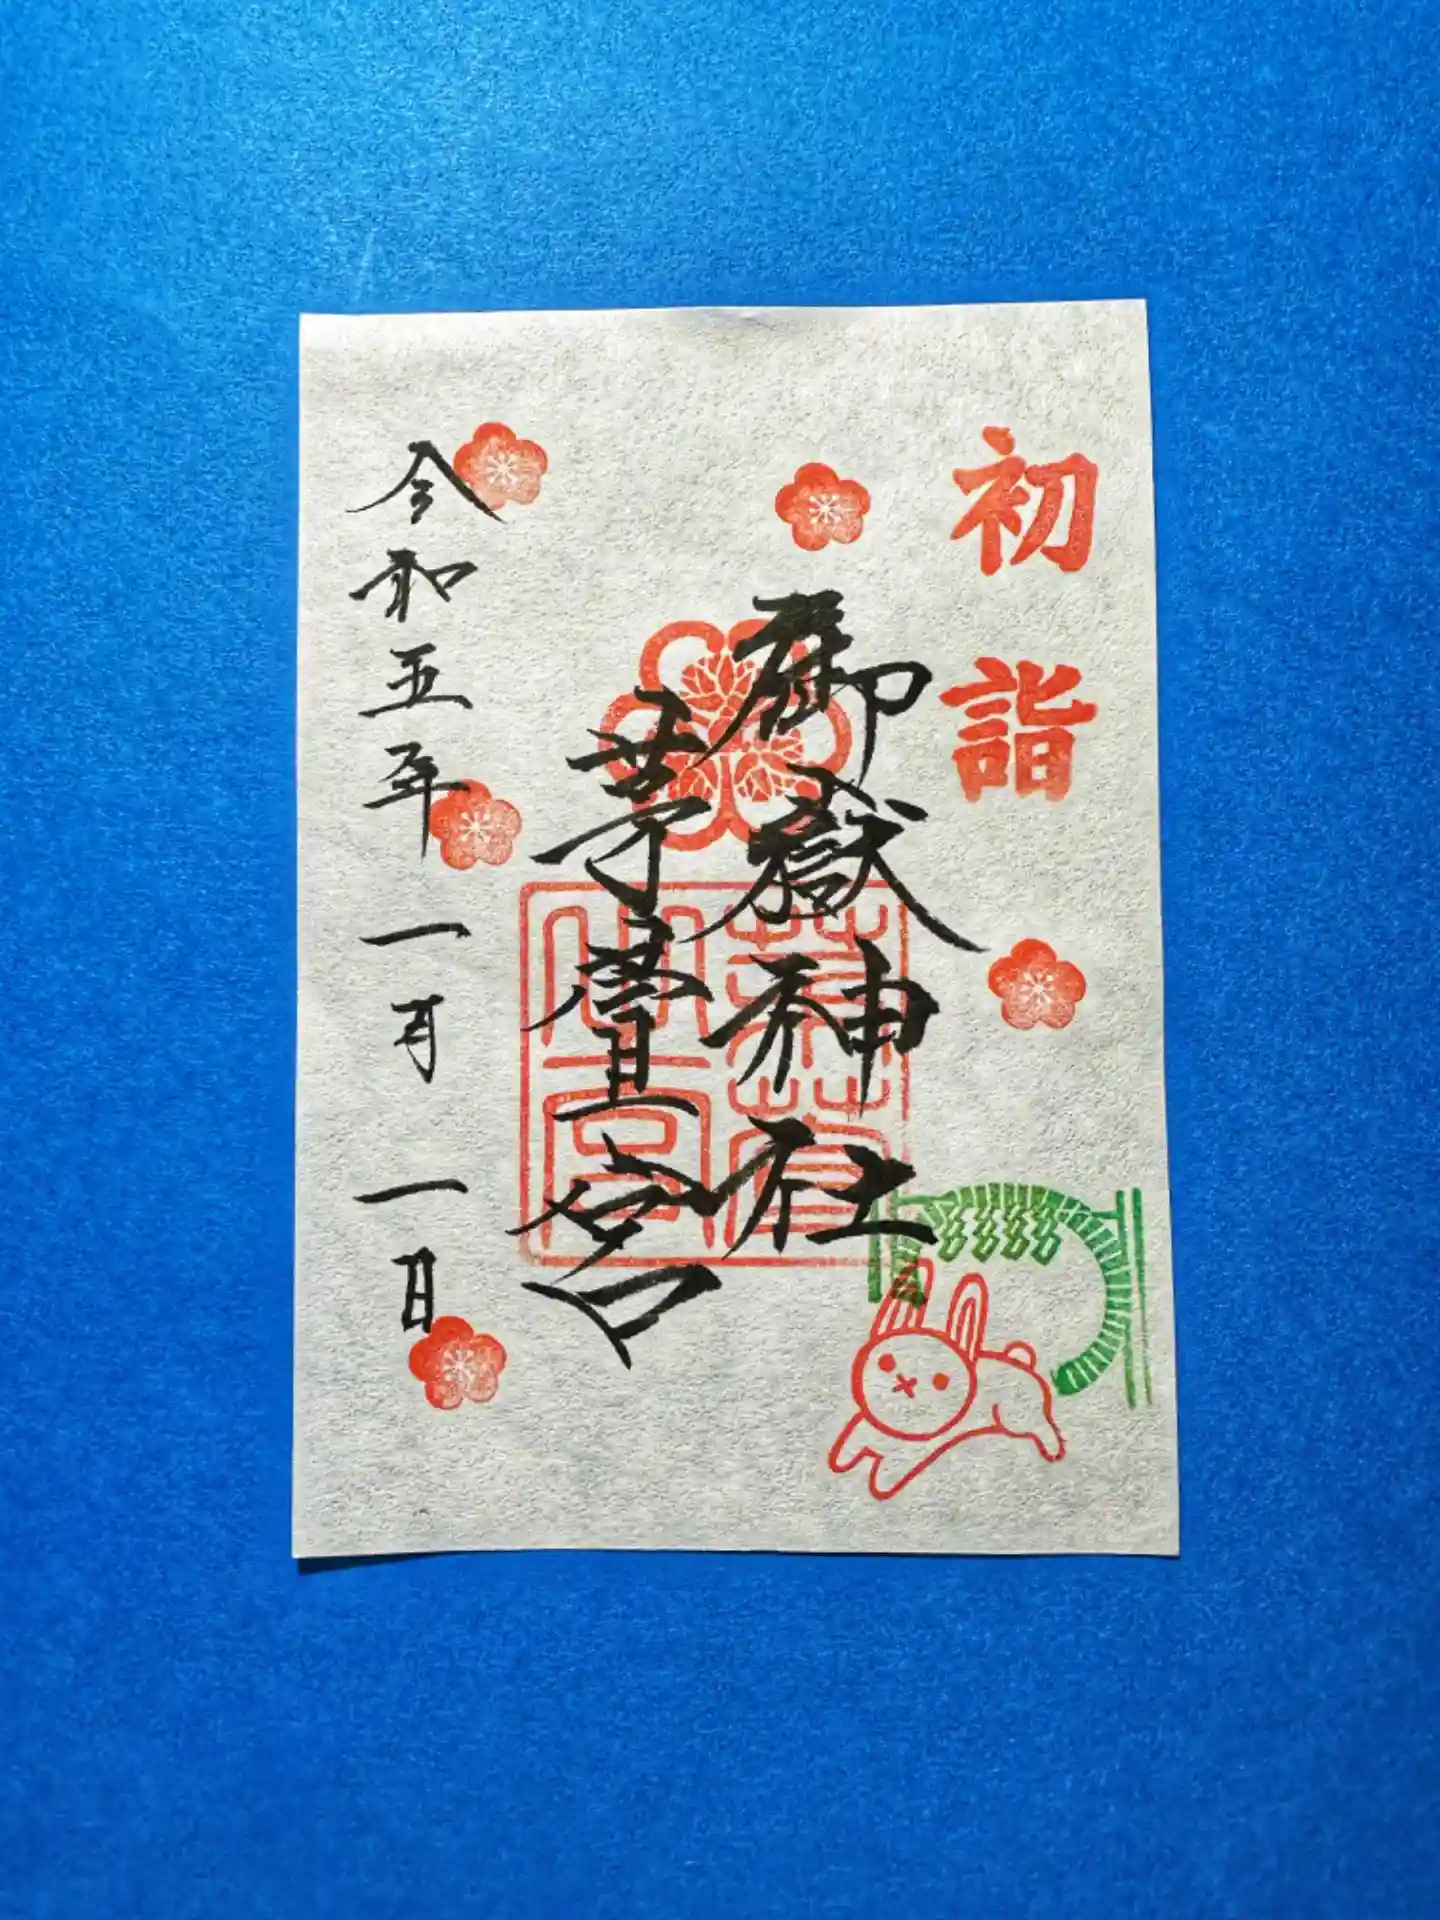 初詣
御嶽神社
茅萱宮
令和五年一月一日